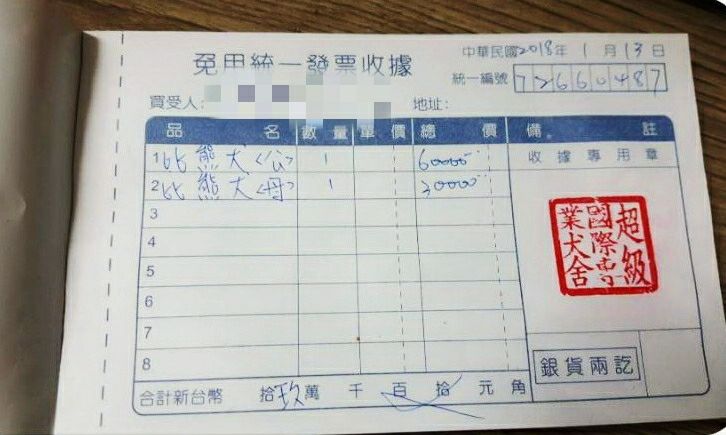 免用統一發票收據
中華民國2018年 1月 13日
統一編號 72660487
買受人:
地址:
品 名 數量 單價 總 價 備 註
1 比熊犬(公) 1 60000
2 比熊犬(母) 1 30000
3
4
5
6
7
8
收據專用章
超級
國際專
業犬舍
銀貨兩訖
合計新台幣 拾玖萬 千 百 拾 元 角